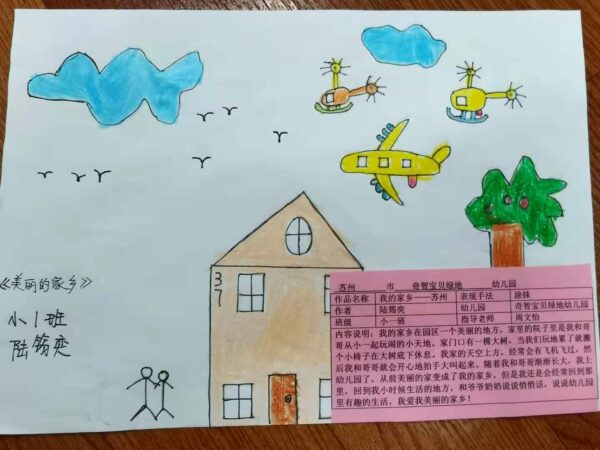 《美丽的家乡》
小1班
陆筠奕
37
苏州 市 奇智宝贝绿地 幼儿园
作品名称 我的家乡——苏州 表现手法 涂抹
作者 陆筠奕 幼儿园 奇智宝贝绿地幼儿园
班级 小一班 指导老师 周文怡
内容说明：我的家乡在园区一个美丽的地方，家里的院子里是我和哥
哥从小一起玩闹的小天地。家门口有一棵大树，当我们玩地累了就搬
个小椅子在大树底下休息。我家的天空上方，经常会有飞机飞过，然
后我和哥哥就会开心地拍手大叫起来。随着我和哥哥渐渐长大，我上
幼儿园了，从前美丽的家变成了我的家乡，但是我还是会经常回到那
里，回到我小时候生活的地方，和爷爷奶奶说说悄悄话，说说幼儿园
里有趣的生活，我爱我美丽的家乡！